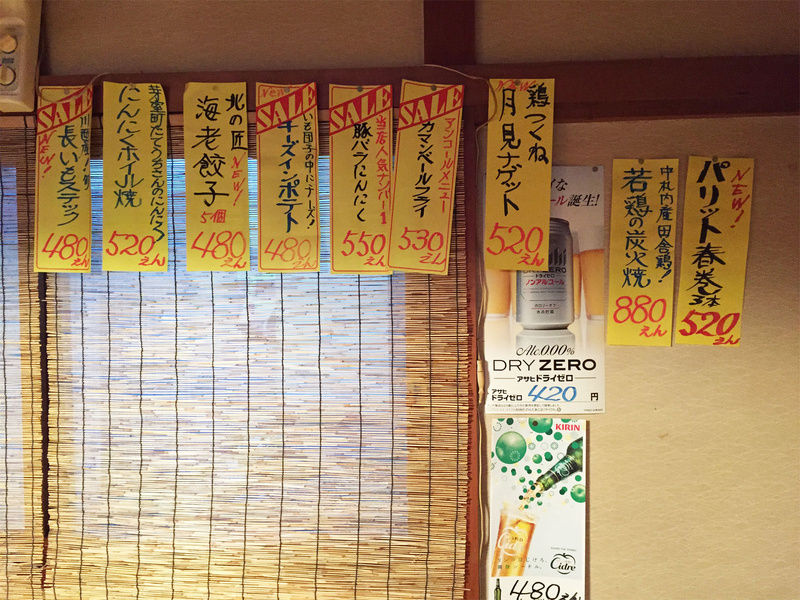 SALE
長いもステック
NEW!
480えん
芽室町たてうちさんのにんにく
にんにくホイル焼
520えん
北の匠
海老餃子
NEW!
5個
480えん
New
SALE
いも団子の中にチーズ!
チーズインポテト
480えん
SALE
当店人気ナンバー1
豚バラにんにく
550えん
SALE
アンコールメニュー
カマンベールフライ
530えん
NEW!
鶏つくね
月見ナゲット
520えん
誕生!
DRY ZERO
ドライゼロ
ノンアルコール
Alc.0.00%
DRY ZERO
アサヒドライゼロ
アサヒ
ドライゼロ
420円
中札内産田舎鶏!
若鶏の炭火焼
880えん
NEW!
パリット春巻3本
520えん
KIRIN
Cidre
480えん